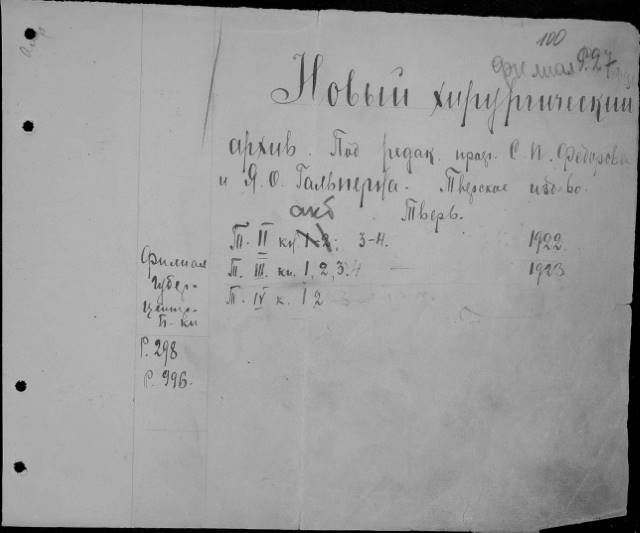 100
филиал Р.27
Новый хирургический
архив. Под редак. проф. С. П. Федорова
и Я. О. Гальперна. Тверское изд-во.
акб Тверь.
Т. II кн 1-2; 3-4. 1922
Т. III. кн. 1, 2, 3. 4 — 1923
Т. IV к. 1 2
Филиал
Губер.
Центр.
Б-ки
Р. 298
Р. 996.